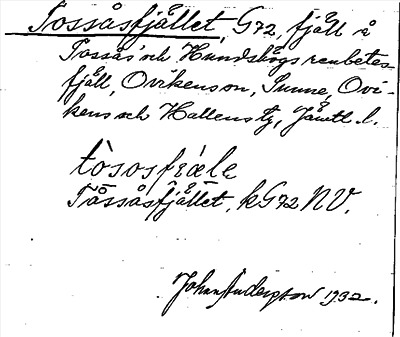 Tossåsfjället, G72, fjäll å
Tossås och Hundshögs renbetes-
fjäll, Ovikens sn, Sunne, Ovi-
kens och Hallens tg, Jämtl. l.
Tåssåsfjället, kG72 NV.
Johan Andersson 1932.